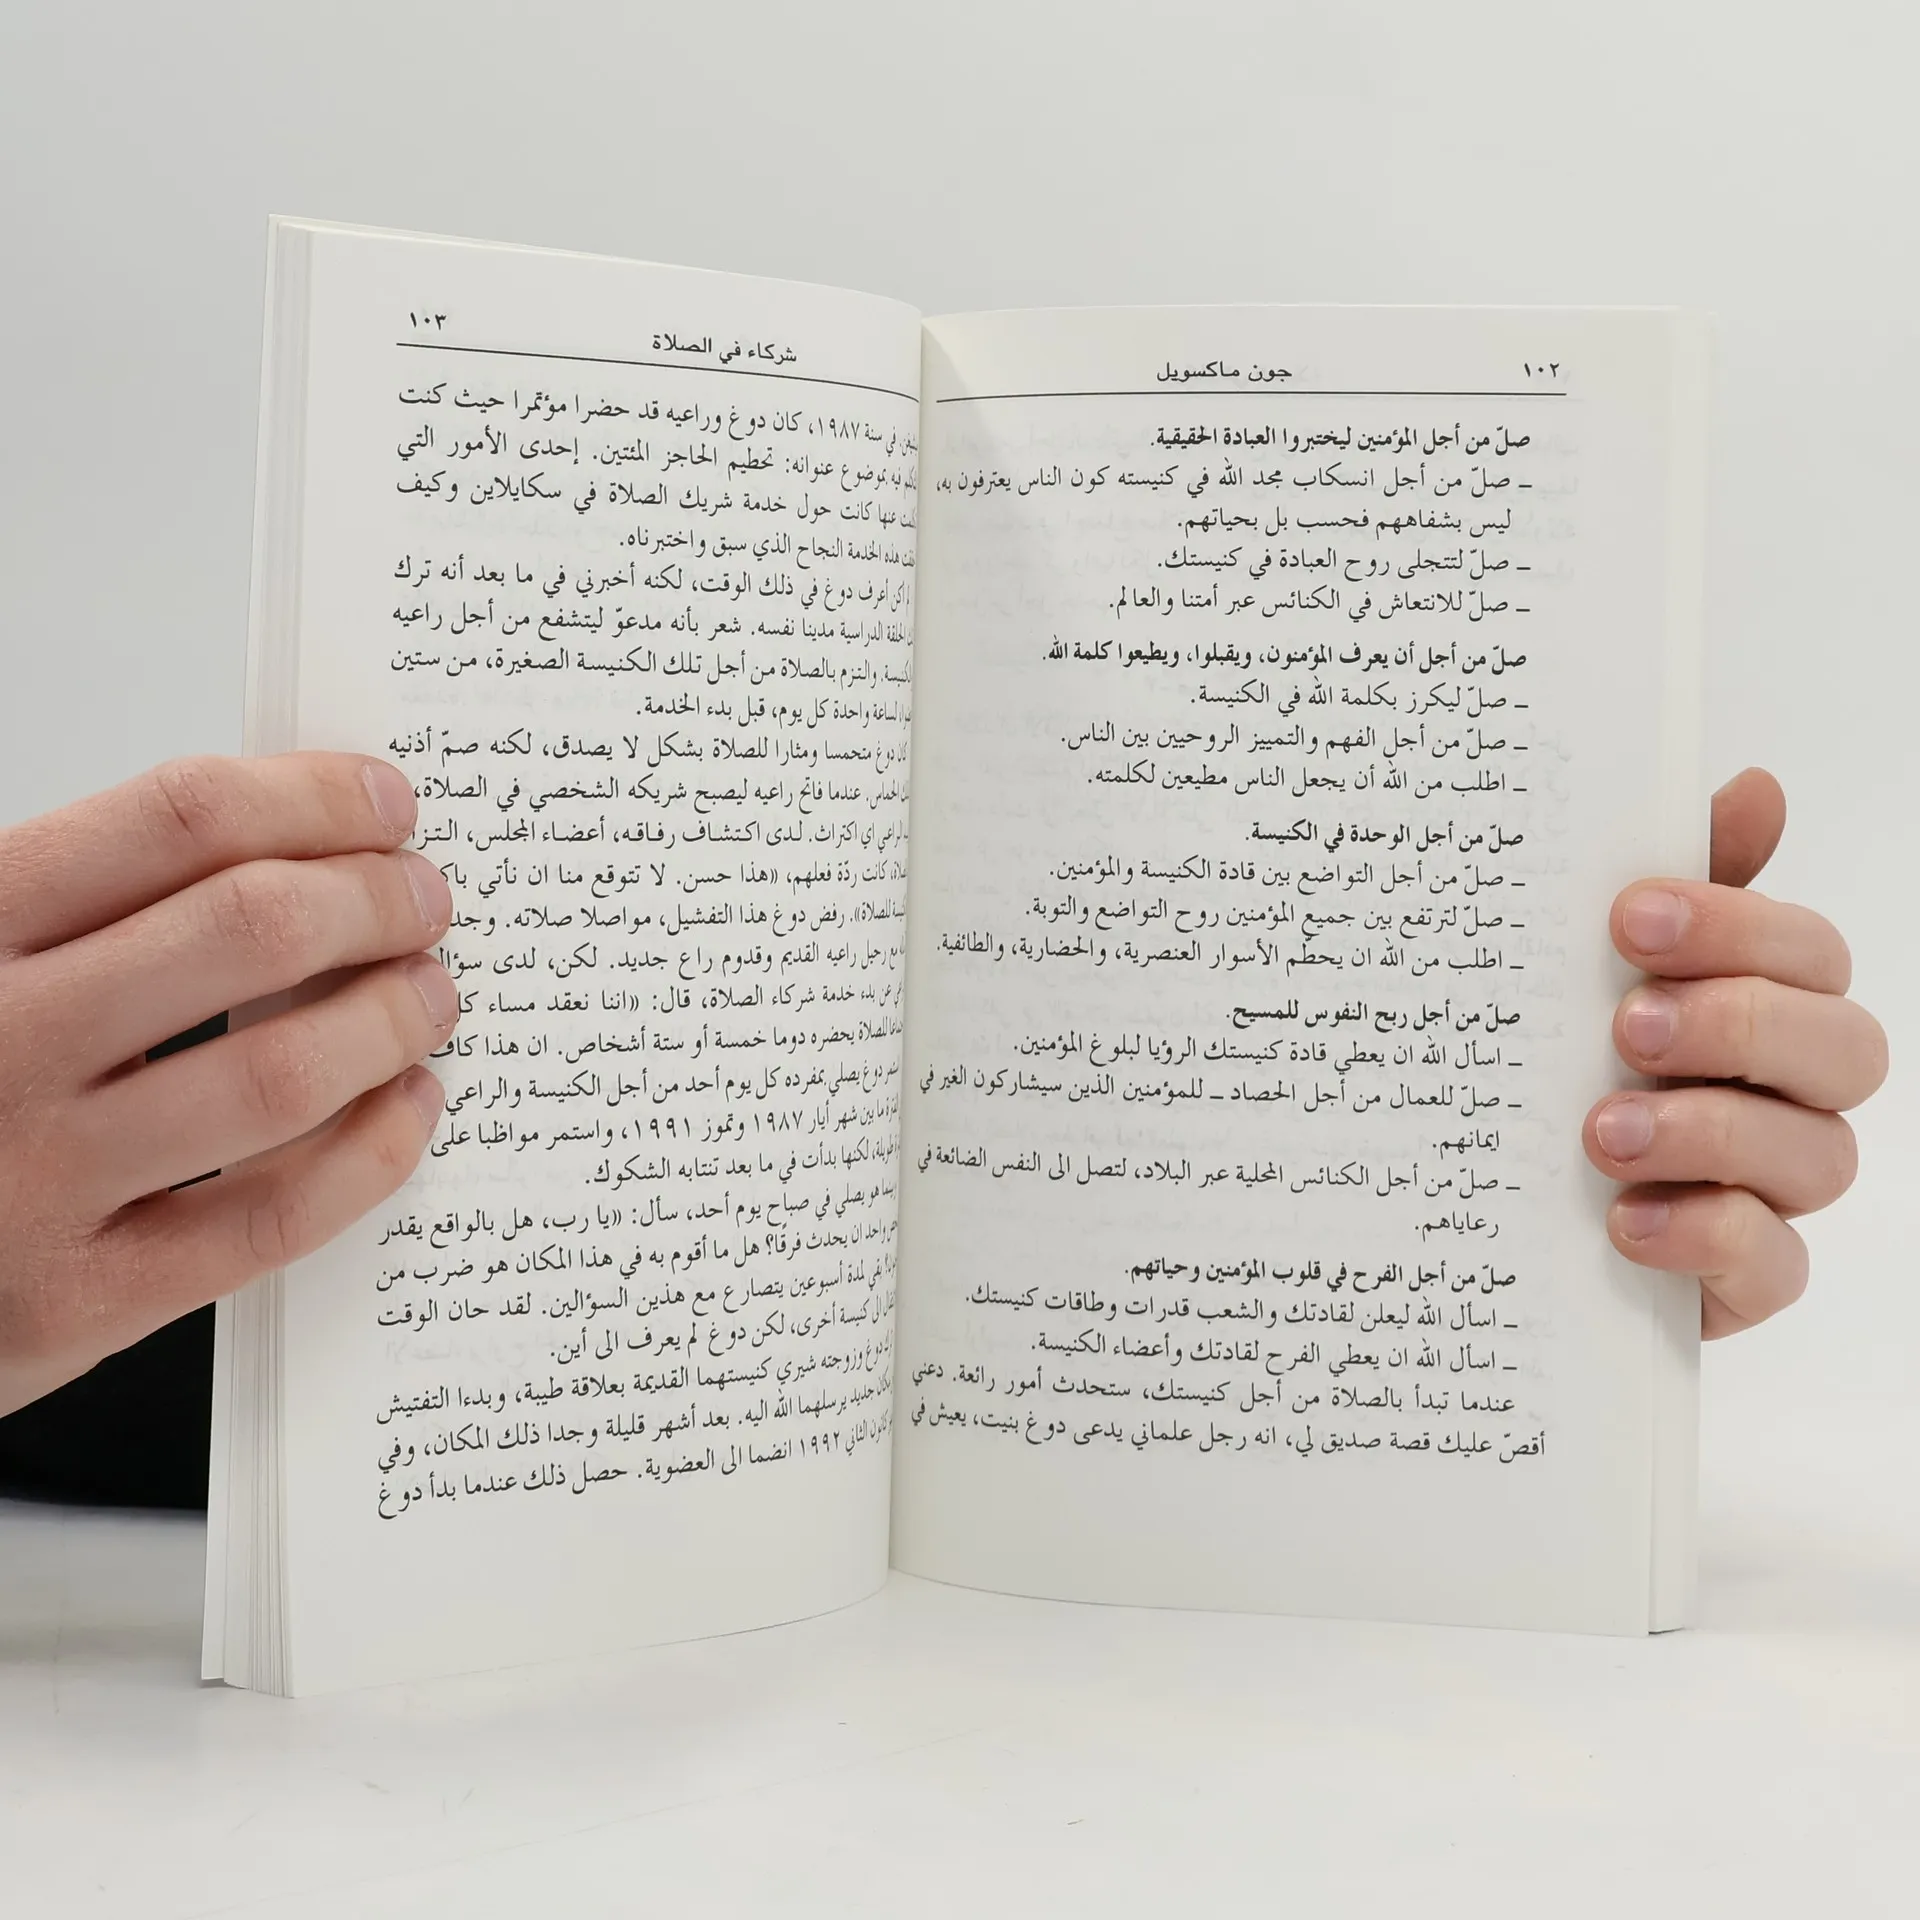 ١٠٢
جون ماكسويل
صلّ من أجل المؤمنين ليختبروا العبادة الحقيقية.
ــ صلّ من أجل انسكاب مجد الله في كنيسته كون الناس يعترفون به،
ليس بشفاههم فحسب بل بحياتهم.
ــ صلّ لتتجلى روح العبادة في كنيستك.
ــ صلّ للانتعاش في الكنائس عبر أمتنا والعالم.
صلّ من أجل أن يعرف المؤمنون، ويقبلوا، ويطيعوا كلمة الله.
ــ صلّ ليكرز بكلمة الله في الكنيسة.
ــ صلّ من أجل الفهم والتمييز الروحيين بين الناس.
ــ اطلب من الله أن يجعل الناس مطيعين لكلمته.
صلّ من أجل الوحدة في الكنيسة.
ــ صلّ من أجل التواضع بين قادة الكنيسة والمؤمنين.
ــ صلّ لترتفع بين جميع المؤمنين روح التواضع والتوبة.
ــ اطلب من الله ان يحطّم الأسوار العنصرية، والحضارية، والطائفية.
صلّ من أجل ربح النفوس للمسيح.
ــ اسأل الله ان يعطي قادة كنيستك الرؤيا لبلوغ المؤمنين.
ــ صلّ للعمال من أجل الحصاد ــ للمؤمنين الذين سيشاركون الغير في
ايمانهم.
ــ صلّ من أجل الكنائس المحلية عبر البلاد، لتصل الى النفس الضائعة في
رعاياهم.
صلّ من أجل الفرح في قلوب المؤمنين وحياتهم.
ــ اسأل الله ليعلن لقادتك والشعب قدرات وطاقات كنيستك.
ــ اسأل الله ان يعطي الفرح لقادتك وأعضاء الكنيسة.
عندما تبدأ بالصلاة من أجل كنيستك، ستحدث أمور رائعة. دعني
أقصّ عليك قصة صديق لي، انه رجل علماني يدعى دوغ بنيت، يعيش في
شركاء في الصلاة
١٠٣
في سنة ١٩٨٧، كان دوغ وراعيه قد حضرا مؤتمرا حيث كنت
فيه بموضوع عنوانه: تحطيم الحاجز المئتين. إحدى الأمور التي
عنها كانت حول خدمة شريك الصلاة في سكايلاين وكيف
هذه الخدمة النجاح الذي سبق واختبرناه.
لم أكن أعرف دوغ في ذلك الوقت، لكنه أخبرني في ما بعد أنه ترك
الحلقة الدراسية مدينا نفسه. شعر بأنه مدعوّ ليتشفع من أجل راعيه
والتزم بالصلاة من أجل تلك الكنيسة الصغيرة، من ستين
لساعة واحدة كل يوم، قبل بدء الخدمة.
كان دوغ متحمسا ومثارا للصلاة بشكل لا يصدق، لكنه صمّ أذنيه
الحماس. عندما فاتح راعيه ليصبح شريكه الشخصي في الصلاة،
اي اكتراث. لدى اكتشاف رفاقه، أعضاء المجلس،
كانت ردّة فعلهم، «هذا حسن. لا تتوقع منا ان نأتي
للصلاة». رفض دوغ هذا التفشيل، مواصلا صلاته.
مع رحيل راعيه القديم وقدوم راع جديد. لكن، لدى
عن بدء خدمة شركاء الصلاة، قال: «اننا نعقد مساء
للصلاة يحضره دوما خمسة أو ستة أشخاص. ان هذا
دوغ يصلي بمفرده كل يوم أحد من أجل الكنيسة والراعي
ما بين شهر أيار ١٩٨٧ وتموز ١٩٩١، واستمر مواظبا على
لكنها بدأت في ما بعد تنتابه الشكوك.
وبينما هو يصلي في صباح يوم أحد، سأل: «يا رب، هل بالواقع يقدر
واحد ان يحدث فرقًا؟ هل ما أقوم به في هذا المكان هو ضرب من
بقي لمدة أسبوعين يتصارع مع هذين السؤالين. لقد حان الوقت
الى كنيسة أخرى، لكن دوغ لم يعرف الى أين.
دوغ وزوجته شيري كنيستهما القديمة بعلاقة طيبة، وبدءا التفتيش
مكان جديد يرسلهما الله اليه. بعد أشهر قليلة وجدا ذلك المكان، وفي
كانون الثاني ١٩٩٢ انضما الى العضوية. حصل ذلك عندما بدأ دوغ